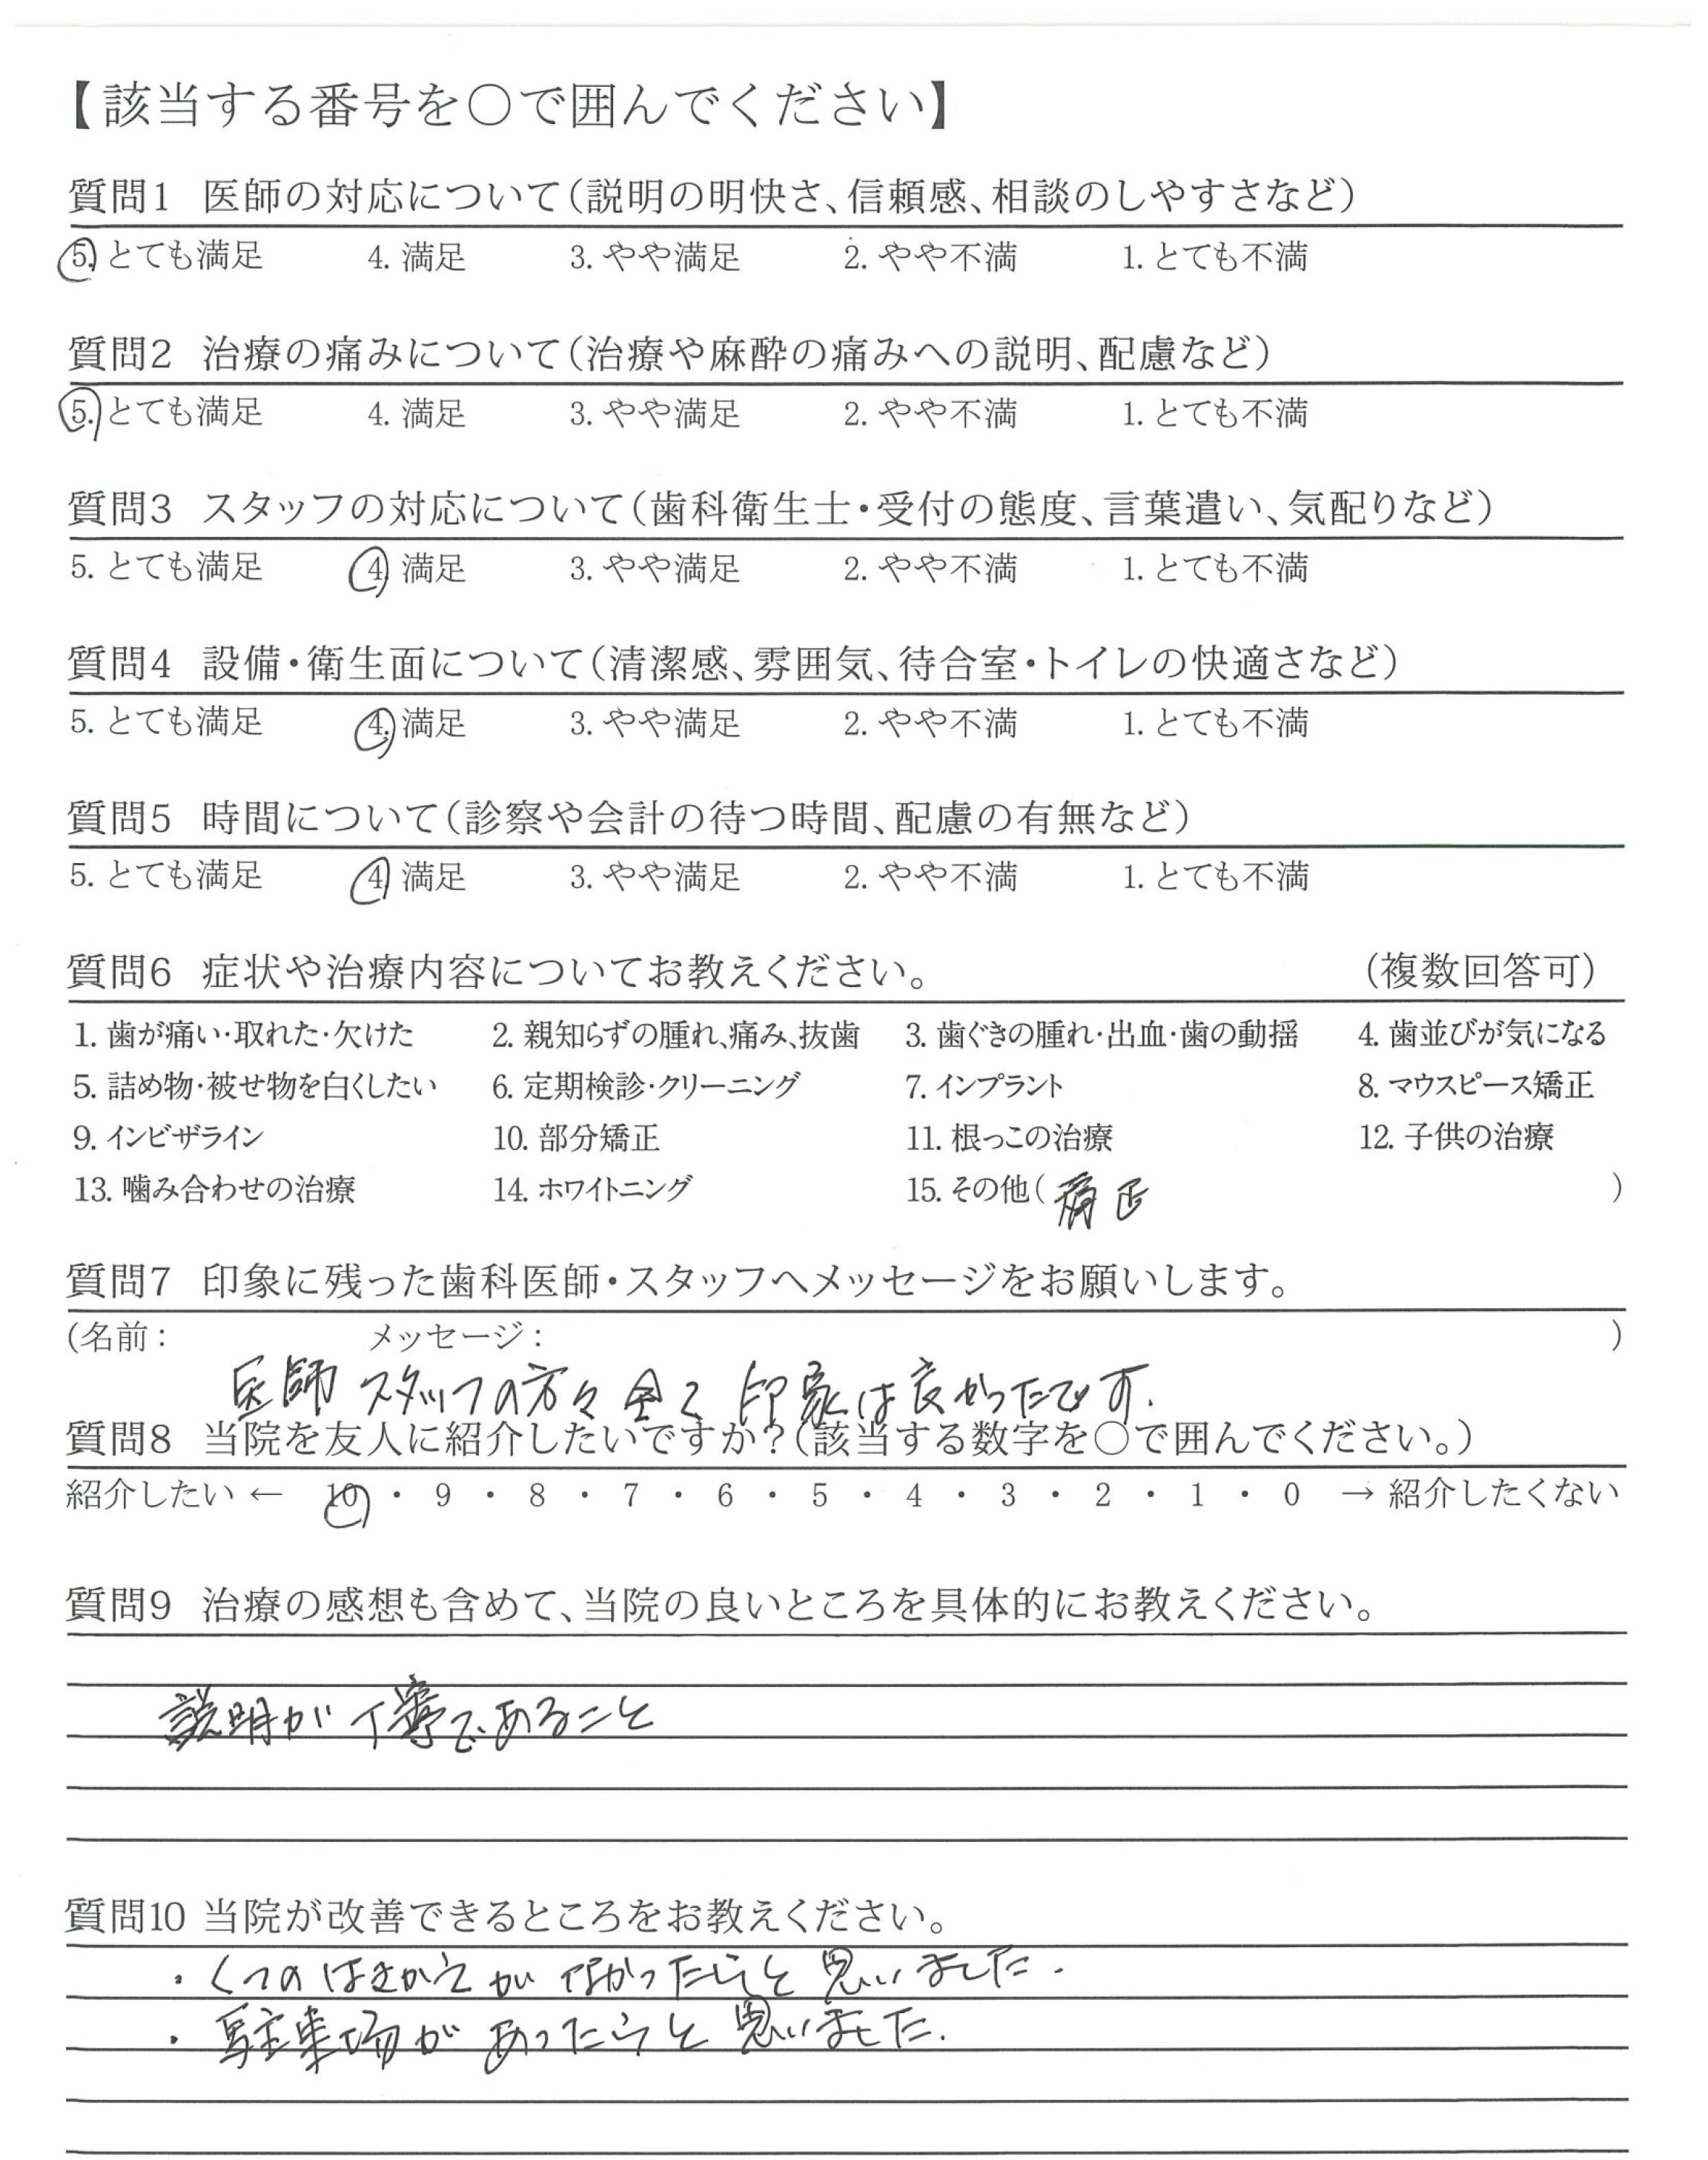 【該当する番号を○で囲んでください】
質問1 医師の対応について(説明の明快さ、信頼感、相談のしやすさなど)
5. とても満足 4. 満足 3. やや満足 2. やや不満 1. とても不満
質問2 治療の痛みについて(治療や麻酔の痛みへの説明、配慮など)
5. とても満足 4. 満足 3. やや満足 2. やや不満 1. とても不満
質問3 スタッフの対応について(歯科衛生士・受付の態度、言葉遣い、気配りなど)
5. とても満足 4. 満足 3. やや満足 2. やや不満 1. とても不満
質問4 設備・衛生面について(清潔感、雰囲気、待合室・トイレの快適さなど)
5. とても満足 4. 満足 3. やや満足 2. やや不満 1. とても不満
質問5 時間について(診察や会計の待つ時間、配慮の有無など)
5. とても満足 4. 満足 3. やや満足 2. やや不満 1. とても不満
質問6 症状や治療内容についてお教えください。 (複数回答可)
1. 歯が痛い・取れた・欠けた 2. 親知らずの腫れ、痛み、抜歯 3. 歯ぐきの腫れ・出血・歯の動揺 4. 歯並びが気になる
5. 詰め物・被せ物を白くしたい 6. 定期検診・クリーニング 7. インプラント 8. マウスピース矯正
9. インビザライン 10. 部分矯正 11. 根っこの治療 12. 子供の治療
13. 噛み合わせの治療 14. ホワイトニング 15. その他( )
質問7 印象に残った歯科医師・スタッフへメッセージをお願いします。
(名前: メッセージ: )
医師 スタッフの方々 全て 印象は良かったです.
質問8 当院を友人に紹介したいですか?(該当する数字を○で囲んでください。)
紹介したい ← 10 ・ 9 ・ 8 ・ 7 ・ 6 ・ 5 ・ 4 ・ 3 ・ 2 ・ 1 ・ 0 → 紹介したくない
質問9 治療の感想も含めて、当院の良いところを具体的にお教えください。
説明が丁寧であること
質問10 当院が改善できるところをお教えください。
・くつのはきかえが なかったらと 思いました.
・駐車場が あったらと 思いました.